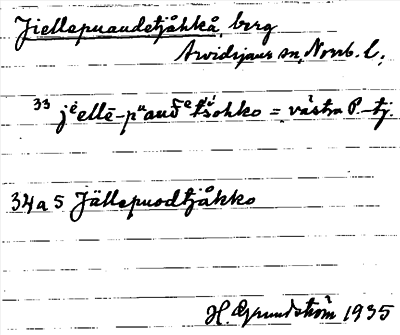 Jiellepuaudetjåhkå, berg
Arvidsjaurs sn, Norrb. l.
33 jiellē-puauδe tšohko = västra P.-tj.
34a5 Jällepuodtjåkko
H. Grundström 1935